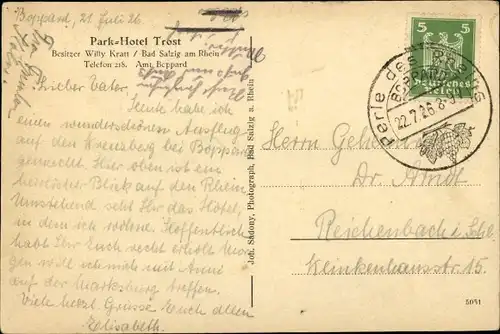 Boppard, 21 Juli 26
Park-Hotel Trost
Besitzer Willy Kratt / Bad Salzig am Rhein
Telefon 218. Amt Boppard
Lieber Vater,
Heute habe ich
einen wunderschönen Ausflug
auf den Kreuzberg bei Boppard
gemacht. Hier oben ist ein
herrlicher Blick auf den Rhein
Umstehend seht Ihr das Hotel,
in dem ich wohne. Hoffentlich
habt Ihr Euch recht erholt. Morgen
will ich mich mit Anni
auf der Marksburg treffen.
Viele herzl. Grüsse Euch allen
Elisabeth.
Joh. Sadony, Photograph, Bad Salzig a. Rhein
5
5
Deutsches
Reich
Perle des Rheins
BOPPARD
22.7.26.8-9
Herrn Geheimrat
Dr. Arndt
Reichenbach i. Schl.
Klinkenhausstr. 15.
5051